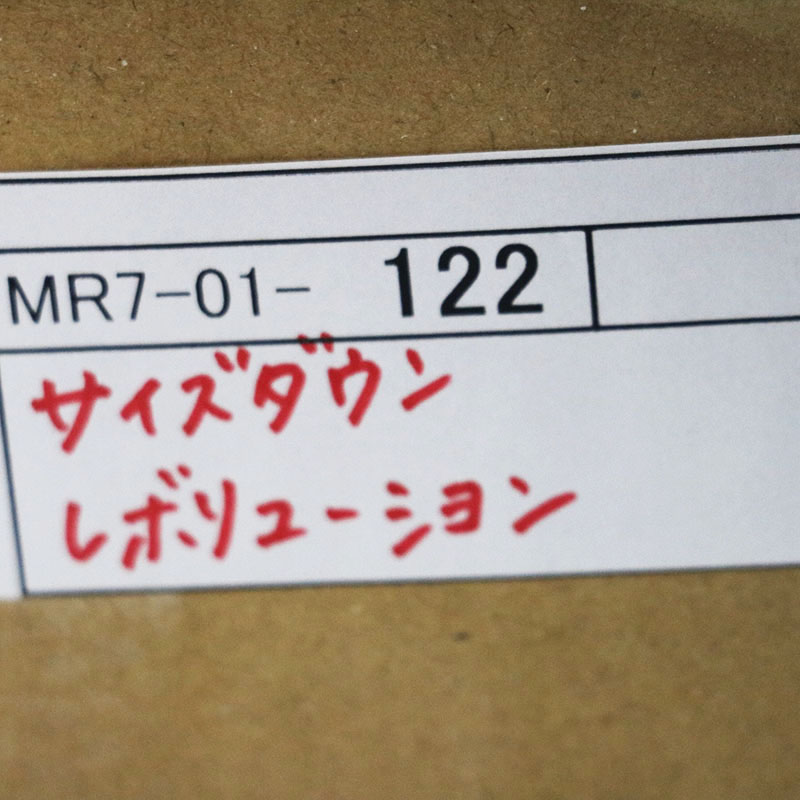 MR7-01- 122
サイズダウン
レボリューション